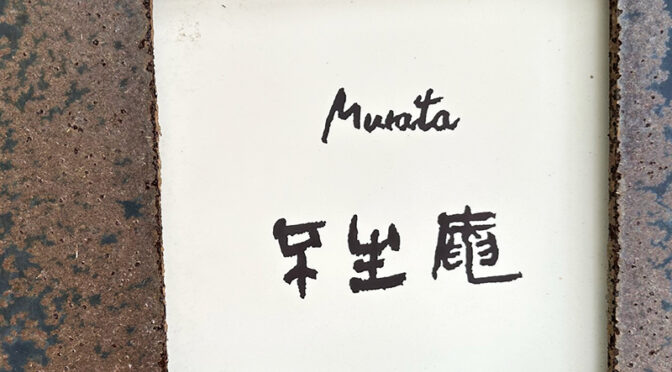 Murata
不生庵